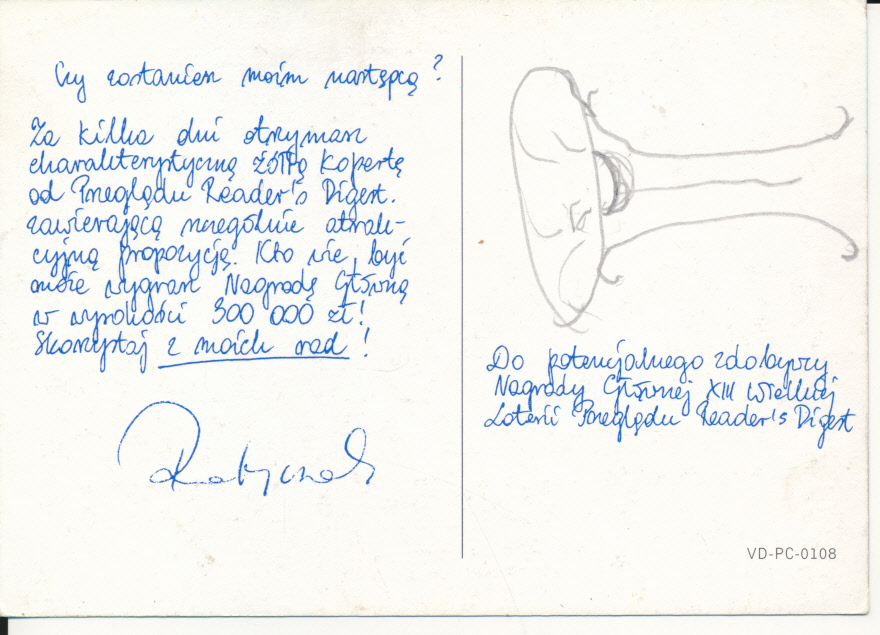 Czy zostaniesz moim następcą?
Za kilka dni otrzymasz
charakterystyczną ŻÓŁTĄ kopertę
od Przeglądu Reader's Digest.
zawierającą szczególnie atrak-
cyjną propozycję. Kto wie, być
może wygrasz Nagrodę Główną
w wysokości 300 000 zł!
Skorzystaj z moich rad!
Do potencjalnego zdobywcy
Nagrody Głównej XIII Wielkiej
Loterii Przeglądu Reader's Digest
VD-PC-0108